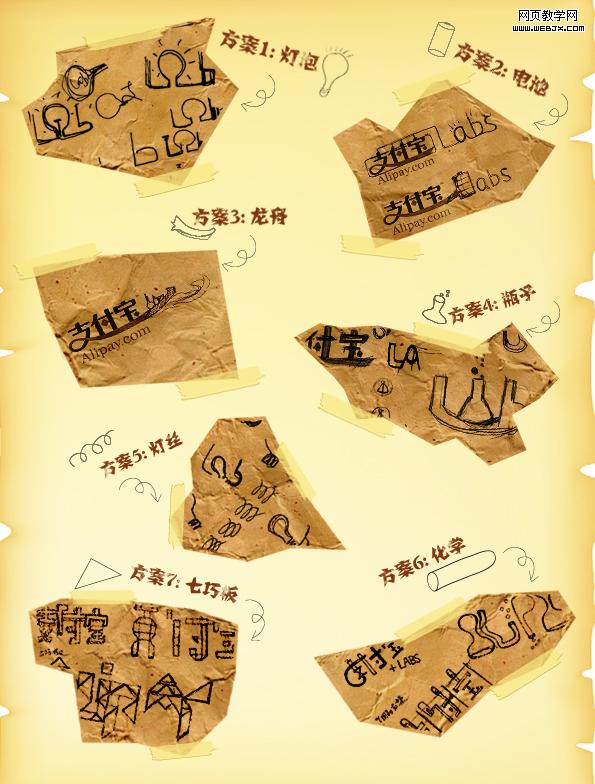 网页教学网
WWW.WEBJX.COM
方案1: 灯泡
方案2: 电池
支付宝 Labs
Alipay.com
支付宝 Labs
Alipay.com
方案3: 龙舟
支付宝
Alipay.com
方案4: 瓶子
付宝 LA
方案5: 灯丝
方案6: 化学
方案7: 七巧板
支付宝
+LABS